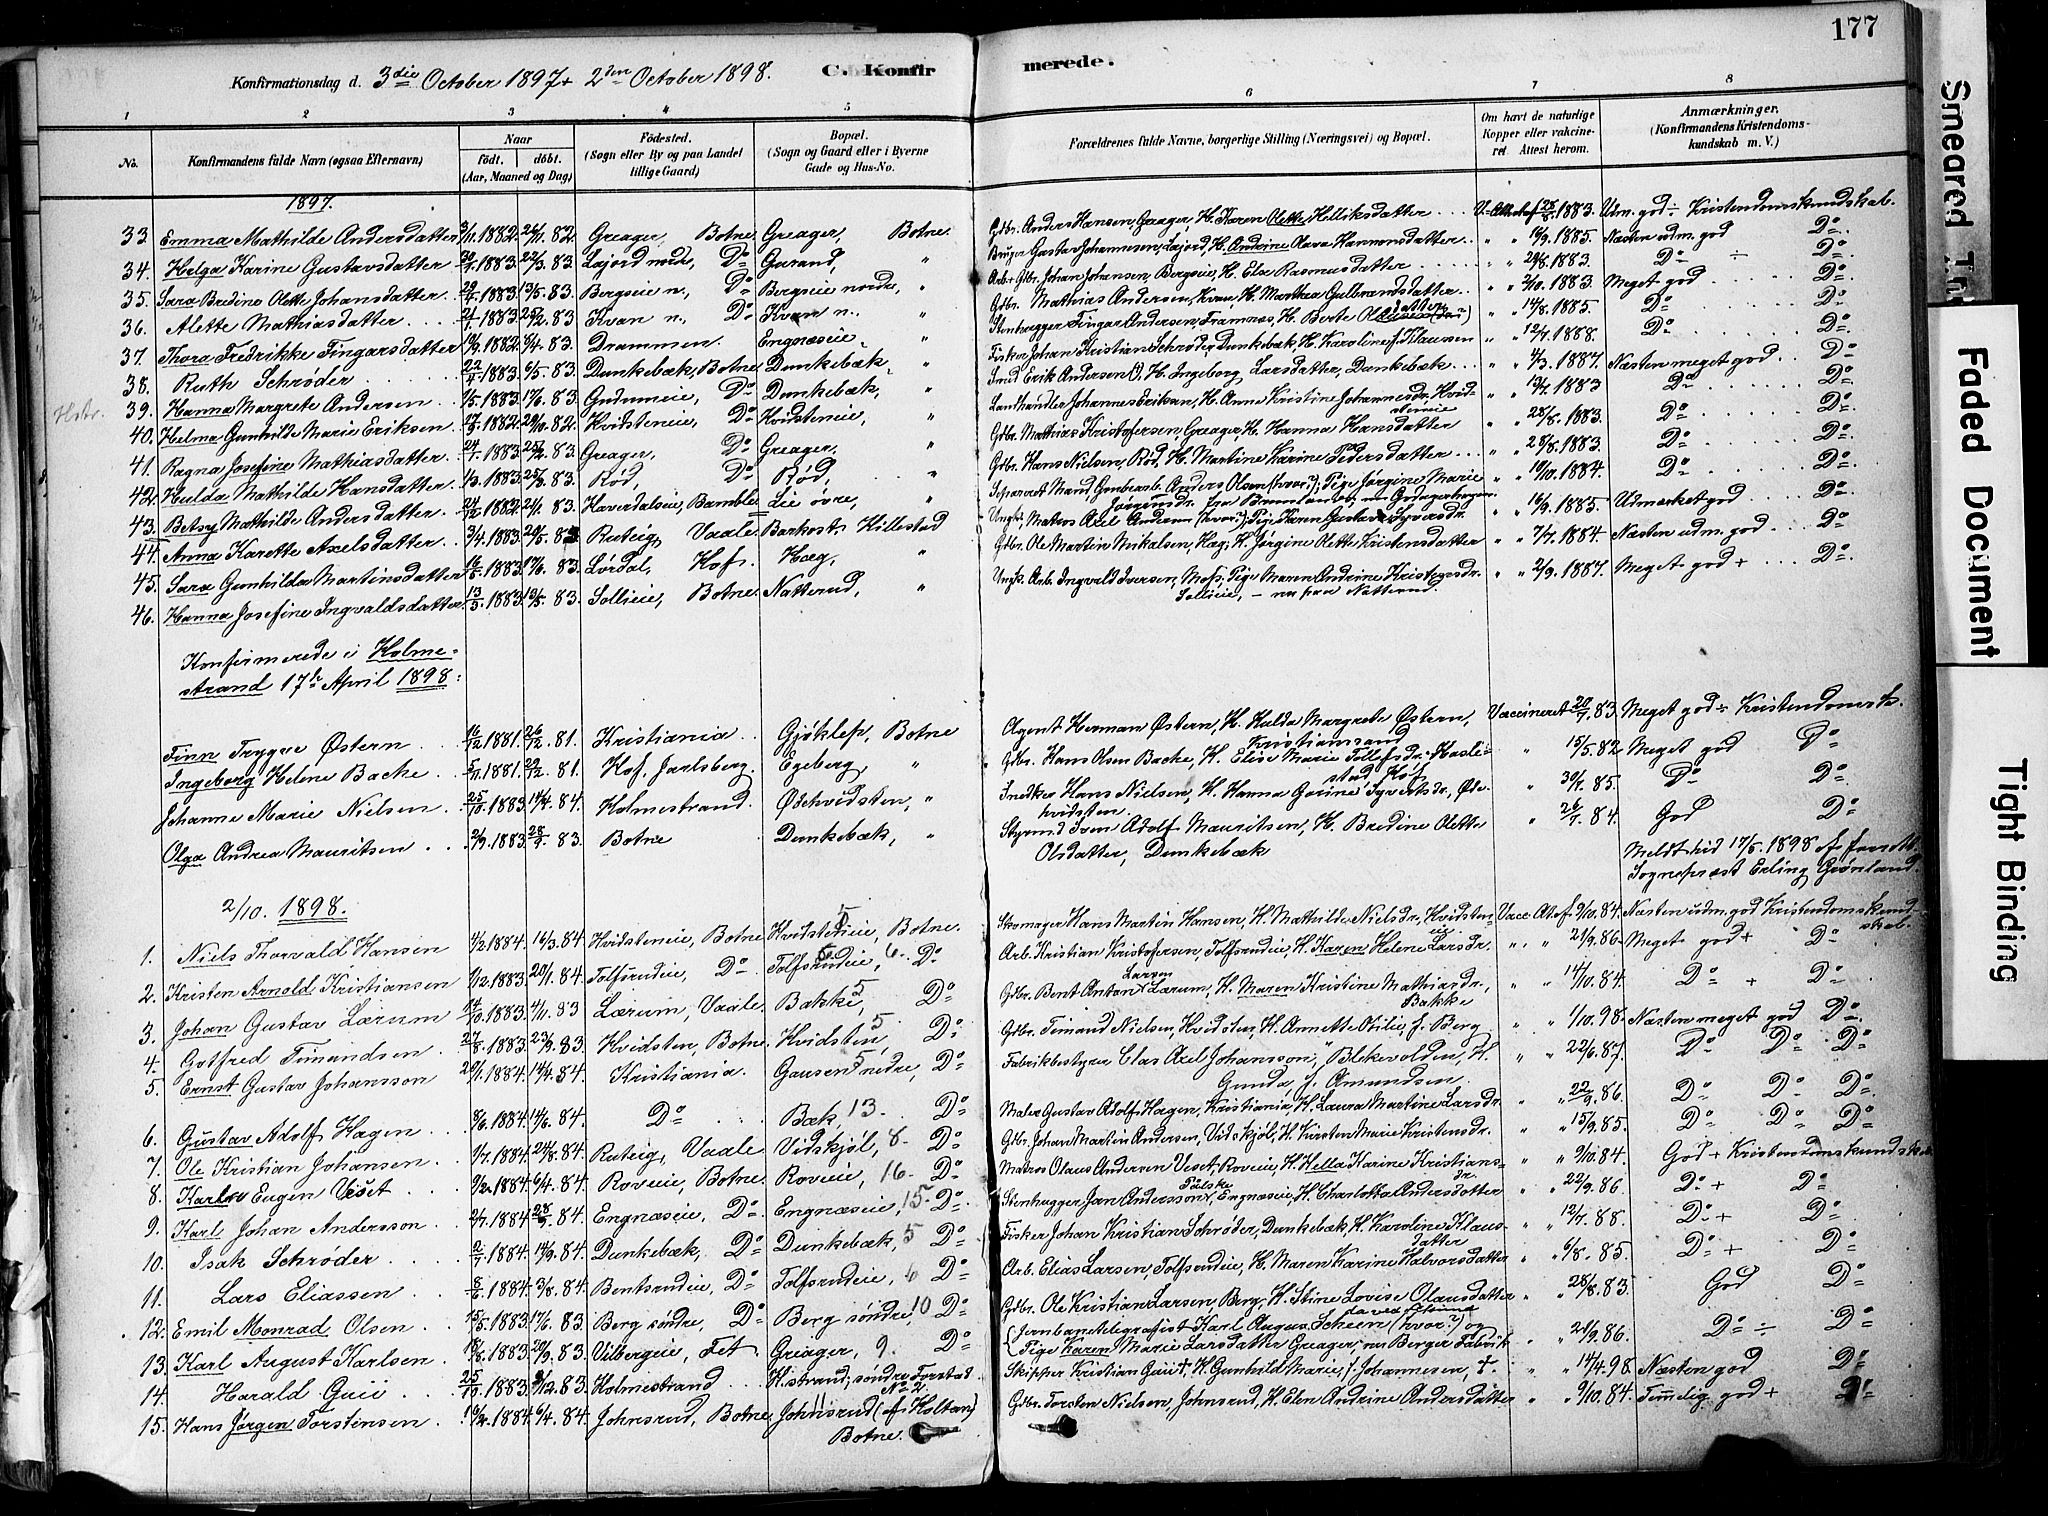 177
Konfirmationsdag d. 3die October 1897 + 2den October 1898.
C. Konfirmerede.
1 2 3 4 5 6 7 8
No. Konfirmandens fulde Navn (ogsaa Efternavn) Naar født, døbt. (Aar, Maaned og Dag) Fødested. (Sogn eller By og paa Landet tillige Gaard) Bopæl. (Sogn og Gaard eller i Byerne Gade og Hus-No. Forældrenes fulde Navne, borgerlige Stilling (Næringsvei) og Bopæl. Om havt de naturlige Kopper eller vakcineret. Attest herom. Anmærkninger. (Konfirmandens Kristendomskundskab m. V.)
1897.
33. Emma Mathilde Andersdatter 1882 26/11.82. Greager, Botne Greager, Botne Gdbr. Anders Hansen, Greager, H. Karen Olette Helliksdatter 1883. Udm. god ÷ Kristendomskundskab.
34. Helga Karine Gustavsdatter 1883. 22/3.83. Lajord nedre, Do Gurand, " Bruger Gustav Johannesen, Lajord, H. Andrine Olava Hannonsdatter " " 16/9.1885. Næsten udm. god Do
35. Sara Bredine Olette Johansdatter 1883. 13/5.83. Bergseie n., Do Bergseie nordre, " Arb. Gdbr. Johan Johansen, Bergseie, H. Else Rasmusdatter " " 29/8.1883. Do ÷ Do
36. Alette Mathiasdatter 1883. 25/2.83. Kvan n., Do Kvan n., " Gdbr. Mathias Andersen, Kvan, H. Marthea Gulbrandsdatter " " 2/10.1883. Meget god Do
37. Thora Fredrikke Fingarsdatter 1882. 6/4.83. Drammen. Engnæseie, " Stenhugger Fingar Andersen, Framnæs, H. Berte " " 14/8.1885. Do Do
38. Ruth Schrøder 22/4.1883. 6/5.83. Dunkebæk, Botne Dunkebæk, " Fisker Johan Kristian Schrøder, Dunkebæk, H. Karoline f. Klausen " " 12/7.1888. Do Do
Hstr. 39. Hanna Margrete Andersen 1/5.1883. 17/6.83. Gudumeie, Do Dunkebæk, Smed Erik Andersen, H. Ingeborg Larsdatter, Dunkebæk " " 1/3.1887. Næsten meget god Do
40. Helma Gunhilde Marie Eriksen 1882. 29/10.82. Hvidsteneie, Do Hvidsteneie, " Landhandler Johannes Eriksen, H. Anne Kristine Johannesdr, Hvidsteneie " " 1883 Do Do
41. Ragna Josefine Mathiasdatter 1883. 25/2.83. Greager, Do Greager, " Gdbr. Mathias Kristofersen, Greager, H. Hanna Hansdatter " " 28/8.1883. Do Do
42. Hulda Mathilde Hansdatter 1/3.1883. 25/3.83. Rød, Do Rød, " Gdbr. Hans Nielsen, Rød, H. Martine Karine Pedersdatter " " 28/8.1883. Do Do
43. Betsy Mathilde Andersdatter 24/12.1882. 21/1.83. Haverdalseie, Bamble Lie øvre, " Separeret Mand, Grubearb. Anders Olsen (hvor?), Pige Jørgine Marie " " 10/10.1884. Do Do
44. Anna Karette Axelsdatter 3/4.1883. 20/5.83 Ruteig, Vaale Barkost, Hillestad Ungk. Matros Axel Andersen (hvor?), Pige Karen Gustava Syversdr. " " 16/9.1885. Udmærket god Do
45. Sara Gunhilda Martinsdatter 1883. 17/6.83. Lørdal, Hof. Hæg, " Gdbr. Ole Martin Mikalsen, Hæg, H. Jørgine Olette Kristensdatter " " 7/7.1884. Næsten udm. god Do
46. Hanna Josefine Ingvaldsdatter 13/5.1883. 19/8.83. Sollieie, Botne Natterud, " Ungk. Arb. Ingvald Iversen, Moss, Pige Maren Andrine Kristensdr. Sollieie, – nu paa Natterud. " " 2/9.1887. Meget god + Do
Konfirmerede i Holmestrand 17de April 1898:
Finn Trygve Østern 16/12.1881. 26/12.81. Kristiania Gjøklep, Botne Agent Herman Østern, H. Hulda Margrete Østern, Kristianssand Vaccineret 20/7.83. Meget god ÷ Kristendomsk.
Ingeborg Helene Bache 5/11.1881. 29/12.81. Hof. Jarlsberg. Egeberg, " Gdbr. Hans Olsen Bache, H. Elise Marie Tollefsdr. Haslestad, Hof. " 15/5.82. Meget god Do
Johanne Marie Nielsen 25/10.1883. 14/4.84. Holmestrand. Ødehvidsten, " Snedker Hans Nielsen, H. Hanna Gorine Syvertsdr., Ødehvidsten. " 30/9.85. Do Do
Olga Andrea Mauritsen 2/9.1883. 28/9.83 Botne Dunkebæk, " Styrmd. Sven Adolf Mauritsen, H. Bredine Olette Olsdatter, Dunkebæk " 26/7.84. God Do
Meldt hid 17/5.1898 af Sognepræst Erling Grønland.
2/10. 1898.
1. Niels Thorvald Hansen 1/2.1884. 16/3.84 Hvidsteneie, Botne Hvidsteneie, 5 Botne. Skomager Hans Martin Hansen, H. Mathilde Nielsdr., Hvidsteneie Vacc. At. of. 9/10.84. Næsten udm. god Kristendomskundskab.
2. Kristen Arnold Kristiansen 1/12.1883. 20/1.84. Tolfsrudeie, Do Tolfsrudeie, 6. Do Arb. Kristian Kristofersen, Tolfsrudeie, H. Karen Helene Larsdr. " " 21/9.86. Meget god + Do
3. Johan Gustav Lærum 14/10.1883. 4/11.83 Lærum, Vaale Bakke, 5 Do Gdbr. Bent Anton Larsen Lærum, H. Maren Kristine Mathiasdr., Bakke " " 14/10.84. Do + Do
4. Gotfred Timandsen 27/8.1883. 23/9.83. Hvidsten, Botne. Hvidsten, 5 Do Gdbr. Timand Nielsen, Hvidsten, H. Annette Otilie f. Berg " " 1/10.98. Næsten meget god Do
5. Ernst Gustav Johansson 1884. 14/4.84 Kristiania. Gausen nedre, 5 Do Fabrikbestyrer Clas Axel Johansson, Blekevolden, H. Gunda, f. Amundsen. " " 22/6.87. Do Do Do
6. Gustav Adolf Hagen 8/6.1884. 14/6.84 Do Bæk, 13. Do Maler Gustav Adolf Hagen, Kristiania, H. Laura Martine Larsdr. " 22/9.86. Do Do Do
7. Ole Kristian Johansen 1/7.1884. 24/8.84. Ruteig, Vaale Vidskjøl, 8. Do Gdbr. Johan Martin Andersen, Vidskjøl, H. Kirsten Marie Kristensdr. " " 15/9.85. Do Do Do
8. Karl Eugen Viset 1884. 6/4.84. Roveie, Botne. Roveie, 16. Do Matros Olaus Andersen Viset, Roveie, H. Hella Karine Kristiansdr. " " 9/10.84. God + Kristendomskundskab
9. Karl Johan Andersson 2/7.1884. 28/9.84. Engnæseie, Do Engnæseie, 15. Do Stenhugger Jan Andersson, Engnæseie, H. Charlotta Andersdotter " " 22/9.86. Do + Do
10. Isak Schrøder 2/7.1884. 14/9.84. Dunkebæk, Do Dunkebæk, 5 Do Fisker Johan Kristian Schrøder, Dunkebæk, H. Karoline Klausdatter " " 12/7.88. Do + Do
11. Lars Eliassen 8/6.1884. 3/8.84. Bentsrudeie, Do Tolfsrudeie, 6 Do Arb. Elias Larsen, Tolfsrudeie, H. Maren Karine Halvorsdatter " " 6/8.85. Do + Do
12. Emil Monrad Olsen 15/5.1883. 17/6.83. Berg søndre, Do Berg søndre, 10 Do Gdbr. Ole Kristian Larsen, Berg, H. Stine Lovise Olausdatter " " 28/8.83. God Do
13. Karl August Karlsen 1883. 20/9.83. Vilbergeie, Fet. Greager, 9. Do Jernbanetelegrafist Karl August Scheen (hvor?) og Pige Karen Marie Larsdatter Greager, nu Berger Fabrik " " 21/9.86. Do ÷ Do
14. Harald Guii 25/10.1883. 9/12.83. Holmestrand H.strand, søndre Torstad No 2. Skipper Kristian Guii †, H. Gunhild Marie, f. Johannesen, † " " 14/4.98. Næsten god Do
15. Hans Jørgen Torstensen 1884. 6/4.84. Johnsrud, Botne Johnsrud 11 (af Holtan) Botne. Gdbr. Torsten Nielsen, Johnsrud, H. Elen Andrine Andersdatter " " 9/10.84. Timmelig god + Do
Smeared
Faded Document
Tight Binding